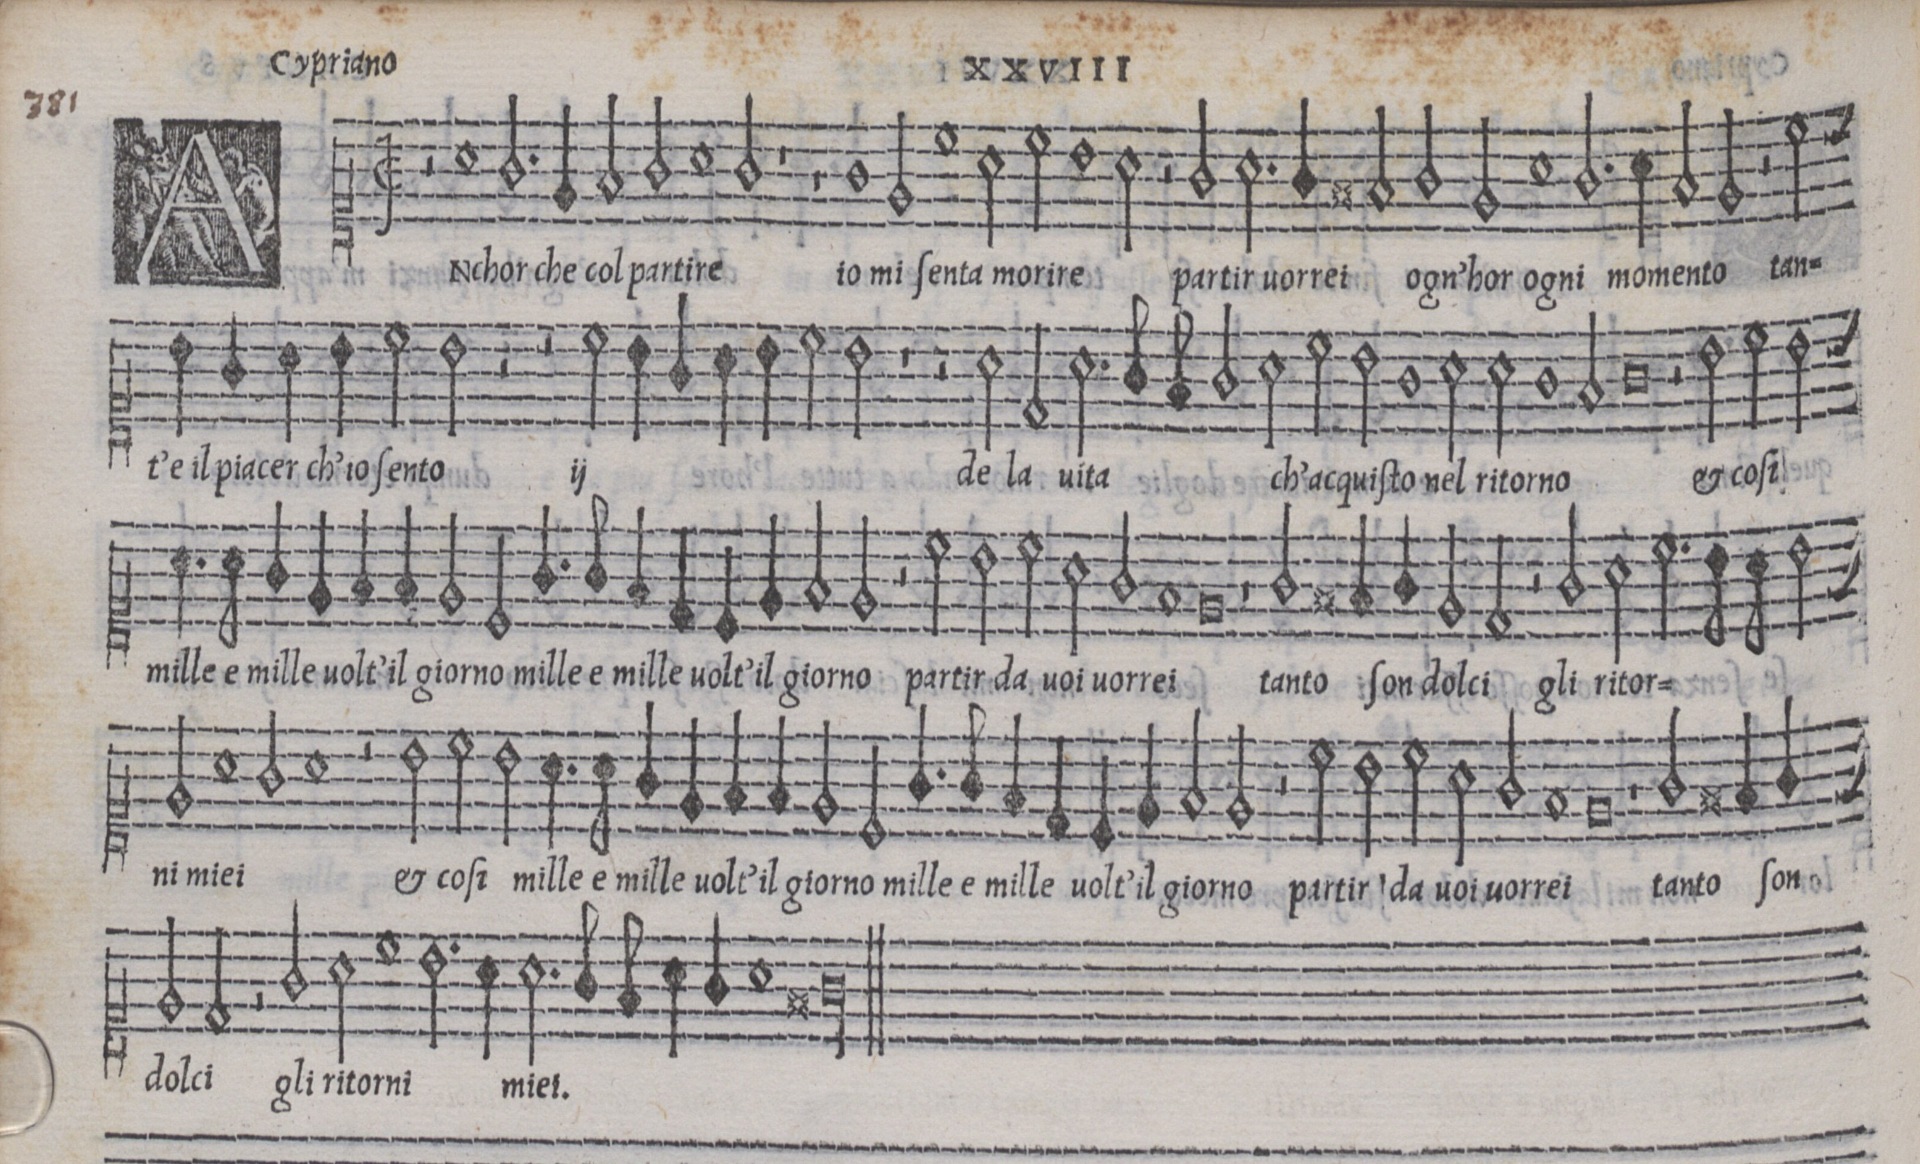 Cypriano XXVIII
381
ANchor che col partire io mi ſenta morire partir uorrei ogn'hor ogni momento tan=
t'e il piacer ch'io ſento ij de la uita ch'acquiſto nel ritorno & coſi
mille e mille uolt'il giorno mille e mille uolt'il giorno partir da uoi uorrei tanto ſon dolci gli ritor=
ni miei & coſi mille e mille uolt'il giorno mille e mille uolt'il giorno partir da uoi uorrei tanto ſon
dolci gli ritorni miei.